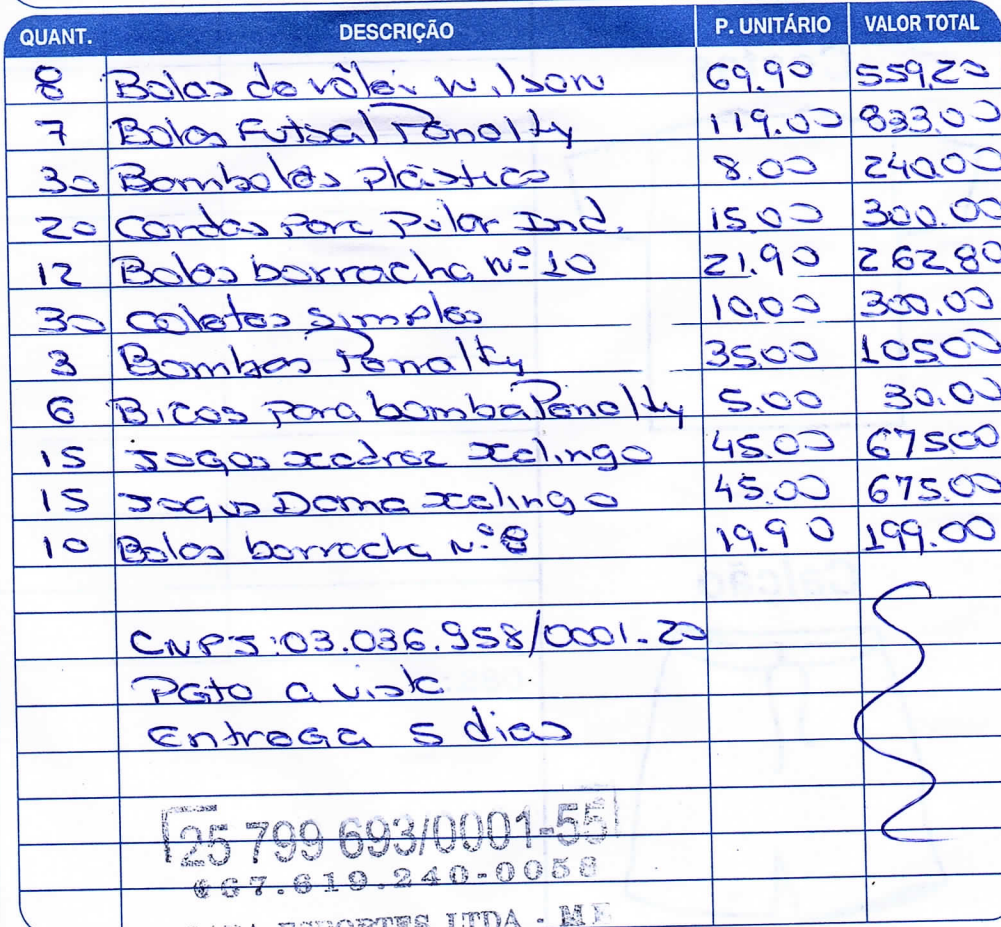 QUANT. DESCRIÇÃO P. UNITÁRIO VALOR TOTAL
8 Bolas de vôlei Wilson 69.90 559,20
7 Bolas Futsal Penalty 119.00 833.00
30 Bomboles plástico 8.00 240.00
20 Cordas para Pular Ind. 15.00 300.00
12 Bolas borracha nº 10 21.90 262,80
30 coletes simples 10,00 300,00
3 Bombas Penalty 35,00 105,00
6 Bicos para bomba Penalty 5.00 30.00
15 Jogos xadrez xalingo 45.00 675,00
15 Jogos Dama xalingo 45.00 675,00
10 Bolas borracha nº 8 19.90 199.00
CNPJ: 03.036.958/0001-20
Pgto a vista
Entrega 5 dias
25 799 693/0001-55
067.619.240-0058
ESPORTES LTDA - ME